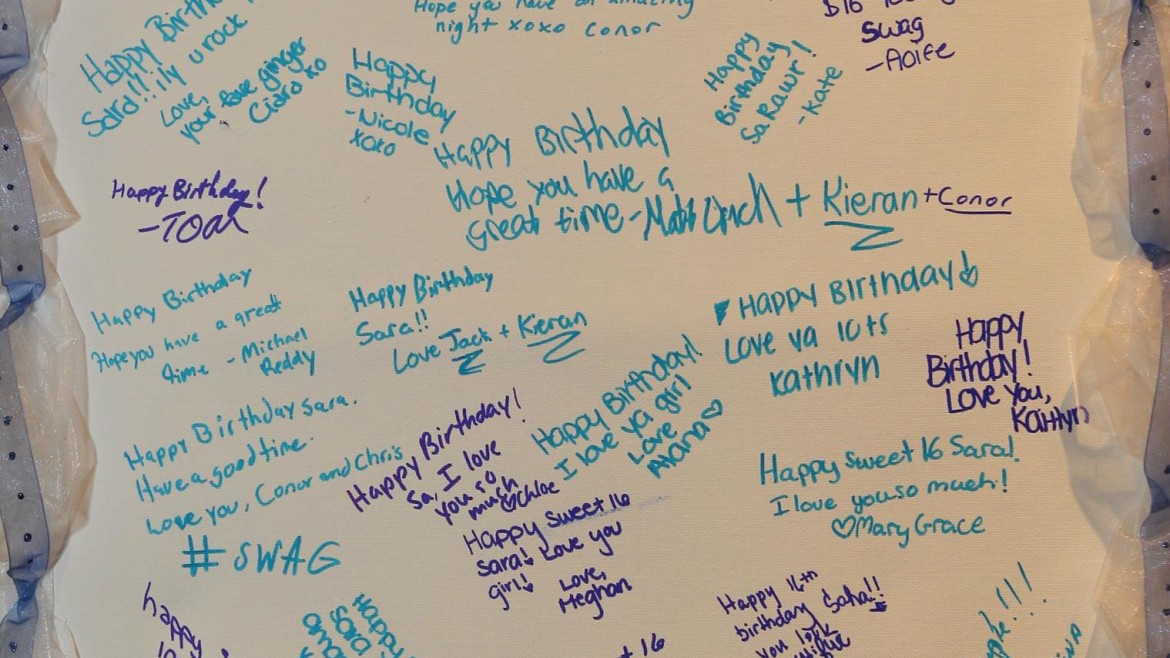 Happy Birth
Sara!!! ily u rock
Love,
your fave ginger
Ciara xo
Hope you have an amazing
night xoxo conor
Happy
Birthday
-Nicole
xoxo
Happy
Birthday
Sa Rawr!
-Kate
Swag
-Aoife
Happy Birthday!
Happy Birthday
Hope you have a
great time - Matt Lynch + Kieran + Conor
Happy Birthday
Hope you have a great
time - Michael
Reddy
Happy Birthday
Sara!!
Love Jack + Kieran
Happy Birthday
Love ya lots
Kathryn
Happy
Birthday!
Love You,
Kaitlyn
Happy Birthday Sara.
Have a good time.
Love you, Conor and Chris
#SWAG
Happy Birthday!
Sa, I love
you so
much
♡Chloe
Happy Birthday!
I love ya girl
Love
Alana♡
Happy Sweet 16 Sara!
I love you so much!
♡Mary Grace
Happy Sweet 16
Sara! Love you
girl!
Love,
Meghan
Happy
Happy
Sara
Happy 16th
birthday Saha!!
you
16